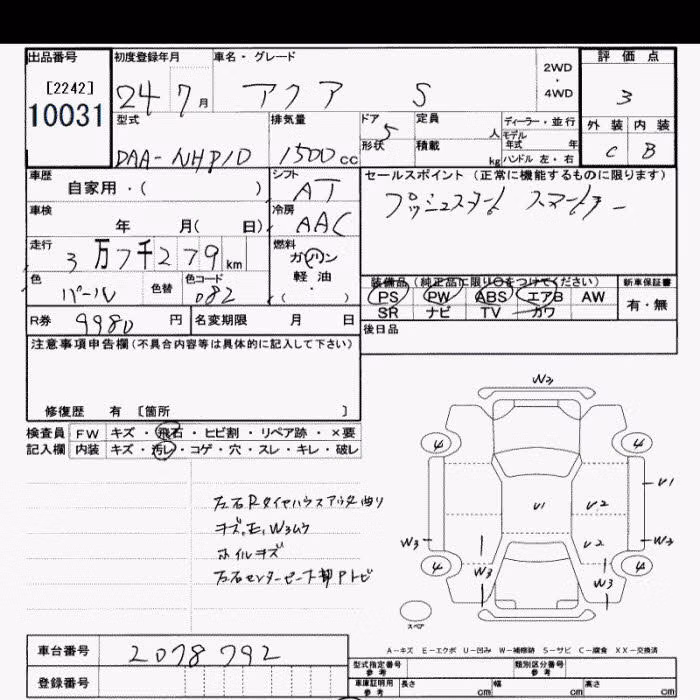 出品番号 初度登録年月 車名・グレード 評価点
[2242]
10031
24 7月 アクア S 2WD・4WD 3
型式 排気量 ドア 定員 ディーラー・並行 外装 内装
DAA-NHP10 1500cc 5 人 モデル年式 年 C B
形状 積載 kg ハンドル 左・右
車歴 シフト セールスポイント(正常に機能するものに限ります)
自家用・( ) AT プッシュスタート スマートキー
車検 冷房
年 月( 日) AAC
走行 燃料
3万7千279km ガソリン
軽油
・( )
色 色替 色コード 装備品(純正品に限り○をつけてください) 新車保証書
パール 082 PS PW ABS エアB AW 有・無
SR ナビ TV カワ
R券 9980円 名変期限 月 日 後日品
注意事項申告欄(不具合内容等は具体的に記入して下さい)
修復歴 有 [箇所 ]
検査員 FW キズ・飛石・ヒビ割・リペア跡・×要
記入欄 内装 キズ・汚レ・コゲ・穴・スレ・キレ・破レ
左右Rタイヤハウスアウタ曲り
キズ.E.W3ムラ
ホイルキズ
左右センターピラー Pトビ
W3
4 4
U1
U1 U2
W3 U2 W3
4 4
W3 W3
スペア
A-キズ E-エクボ U-凹み W-補修跡 S-サビ C-腐食 XX-交換済
車台番号 2078792
登録番号
型式指定番号 参考 類別区分番号 参考
車庫証明用 参考 長さ cm 幅 cm 高さ cm